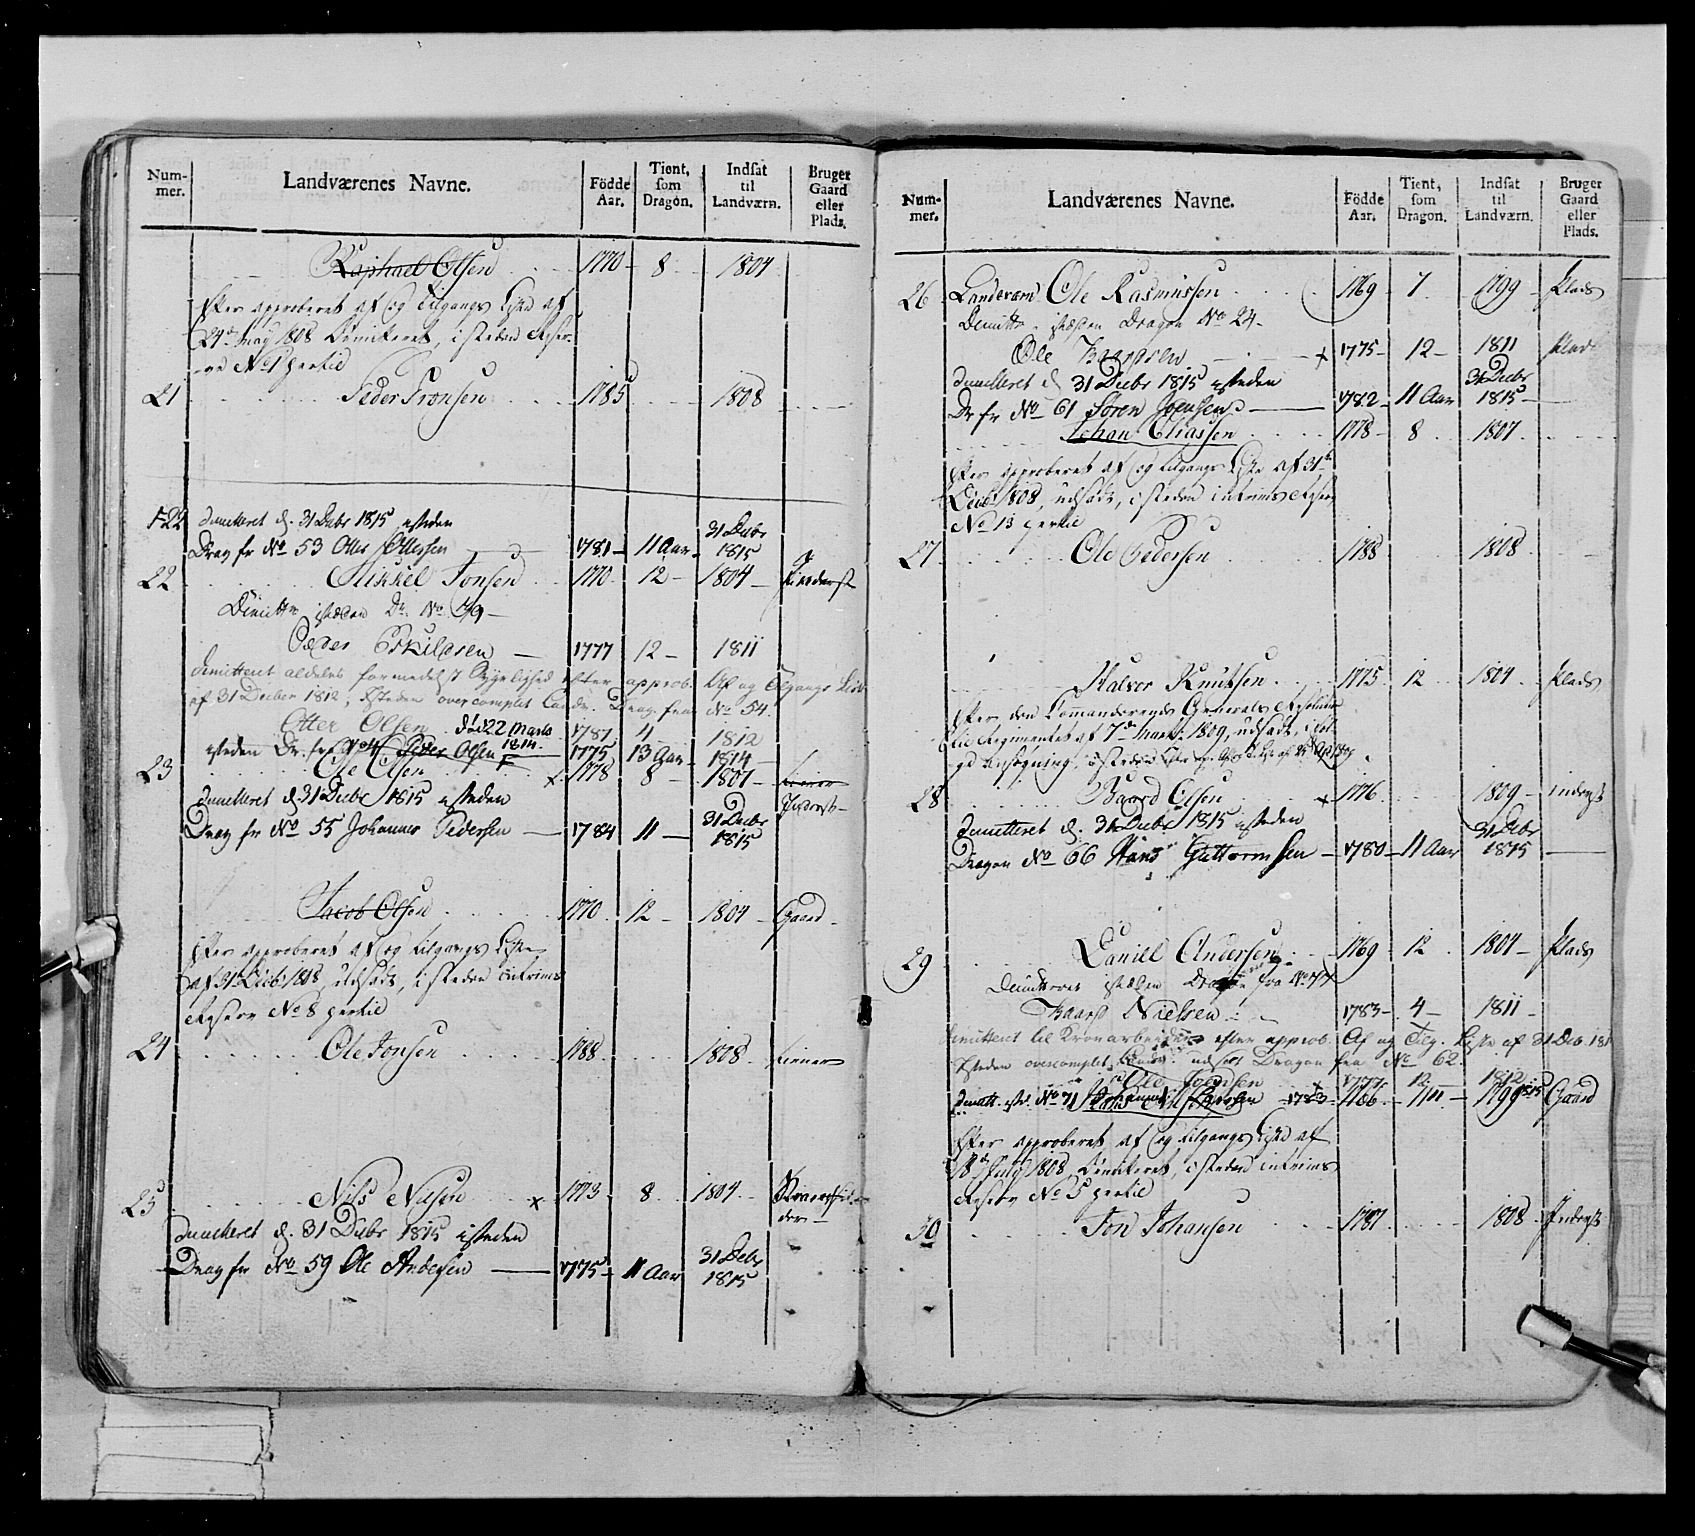 Num-mer. Landværenes Navne. Födde Aar. Tient, som Dragon. Indsat til Landværn. Bruger Gaard eller Plads.
Raphael Olsen 1770 8 1804
Efter approberet af og Tilgangs Liste af
24de May 1808 Dimitteret, isteden Reser-
ve No 1 hertil
21 Peder Tronsen 1785 1808
22 dimitteret d. 31 Decbr 1815 isteden
Drag fr No 53 Otter Ottersen 1781 11 Aar 31 Decbr 1815
22 Mikkel Jonsen 1770 12 1804 Inderst
Dimitte isteden Dr. No 49
Peder Eskildsen 1777 12 1811
dimitteret aldeles formedelst Sygelighed efter approb. Af og Tilgangs Liste
af 31 Decber 1812, isteden overcomplet Landv. Drag. fra No 54.
Otter Olsen død 22 Marts 1814 1781 4 1812
isteden Dr. fra No Peder Olsen 1775 13 Aar 1814
23 Ole Olsen x 1778 8 1807 Inderst
dimitteret d. 31 Decbr 1815 isteden
Drag fr No 55 Johannes Pedersen 1784 11 31 Decbr 1815
Jacob Olsen 1770 12 1804 Gaard
Efter approberet af og tilgangs Liste
af 31 Decbr 1808, udsadt, isteden intrims
Reserv No 8 hertil
24 Ole Jonsen 1788 1808
25 Nils Nilsen x 1773 8 1804
dimitteret d. 31 Decbr 1815 isteden
Drag fr No 59 Ole Andersen 1775 11 Aar 31 Decbr 1815
Num-mer. Landværenes Navne. Födde Aar. Tient, som Dragon. Indsat til Landværn. Bruger Gaard eller Plads.
26 Landeværn Ole Rasmussen 1769 7 1799 Plads
Dimitte isteden Dragon No 24
Ole x 1775 12 1811 Plads
dimitteret d 31 Decbr 1815 isteden
Dr fr No 61 Søren Jensen 1782 11 Aar 31 Decbr 1815
Johan Eliassen 1778 8 1807
Efter approberet af og tilgangs Liste af 31te
Decbr 1808, udsadt, isteden intrims Reserv
No 13 hertil
27 Ole Pedersen 1788 1808
Halvor Knutsen 1775 12 1804 Plads
Efter den Commanderende Generals Resolution
til Regimentet af 7de Marts 1809, udsadt, iføl-
ge Ansøgning, isteden
28 Baard Olsen x 1776 1809 inderst
dimitteret d. 31 Decbr 1815 isteden
Dragon No 66 Hans Guttormsen 1780 11 Aar 31 Decbr 1815
29 Daniel Andersen 1769 12 1804 Plads
Dimitteret isteden Dragon fra No 77
Baard Nielsen 1783 4 1811
dimitteret til Kronarbeider efter approb. Af og Tilg. Liste af 31 Dec. 181
isteden overcomplet Landv. udsat Dragon fra No 62.
Ole Joensen x 1777 12 1812
dimitt. isted. No 71 1783 1766 11 1799 1815 Gaard
Efter approberet af og tilgangs Liste af
18de July 1808 Dimiteret, isteden intrims
Reserv No 5 hertil
30 Jon Johansen 1787 1808 Inderst